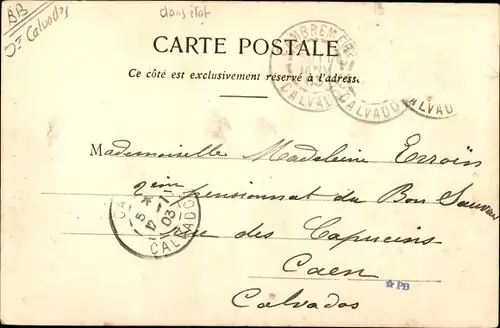 BB
Dz Calvados
dans état
CAMBREMER
CALVAD
CALVADOS
ALVAD
CARTE POSTALE
Ce côté est exclusivement réservé à l'adresse.
Mademoiselle Madeleine Erroïn
pensionnat du Bon Sauveur
rue des Capucins
Caen
Calvados
CA
5 4
03
CALVADOS
PB